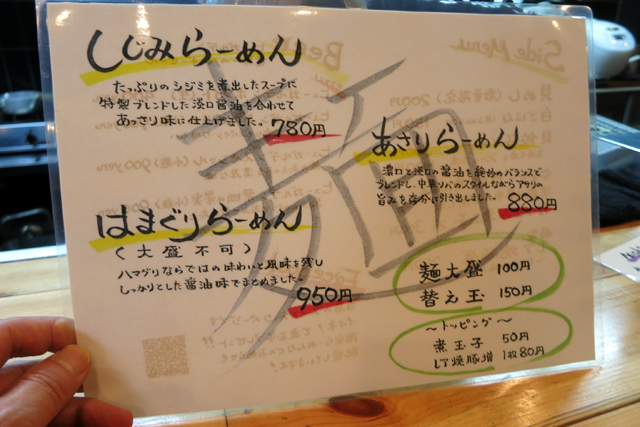 しじみらーめん
たっぷりのシジミを煮出したスープに
特製ブレンドした淡口醤油を合わせて
あっさり味に仕上げました。
780円
あさりらーめん
濃口と淡口の醤油を絶妙のバランスで
ブレンドし、中華ソバのスタイルながらアサリの
旨みを存分に引き出しました。
880円
はまぐりらーめん
(大盛不可)
ハマグリならではの味わいと風味を残し
しっかりとした醤油味でまとめました。
950円
麺
麺大盛 100円
替え玉 150円
〜トッピング〜
煮玉子 50円
レア焼豚増 1枚80円
Side Menu